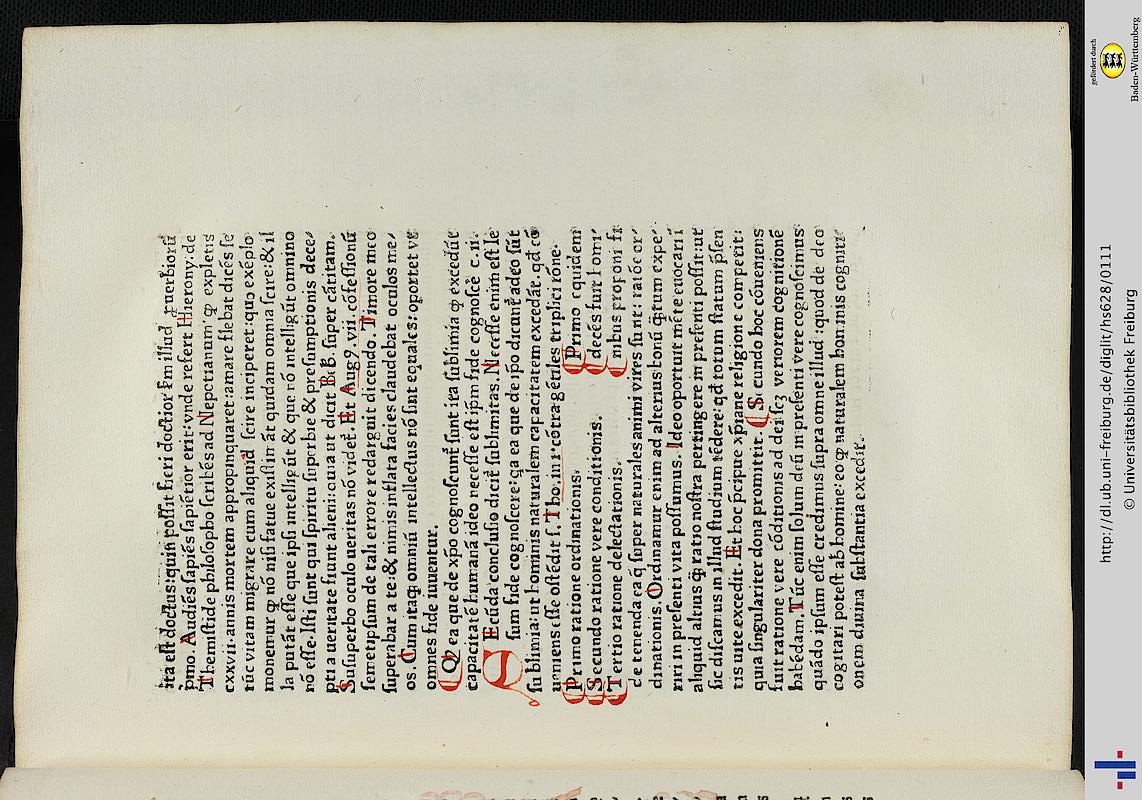 ita est doctus: quin possit fieri doctior ẜm illud ꝓuerbiorū
p̊mo. Audiēs sapiēs sapiētior erit: vnde refert Hierony. de
Themistide philosopho scribēs ad Nepotianum' ꝙ expletis
cxxvii. annis mortem appropinquaret: amare flebat dicēs se
tūc vitam migrare cum aliquid scire inciperet: quo exēplo
monemur ꝙ nō nisi fatue existimāt quidam omnia scire: & il
la putāt esse que ipsi intelligūt & que nō intelligūt omnino
nō esse. Isti sunt qui spiritu superbie & presumptionis dece/
pti a ueritate fiunt alieni: quia ut dicit B. B. super cātitam.
Susuperbo oculo ueritas nō videt̄. Et Aug9. vii. cōfessionū
semetipsum de tali errore redarguit dicendo. Timore meo
superabar a te: & nimis inflata facies claudebat oculos me/
os. Cum itaq; omniū intellectus nō sint equales: oportet vt
omnes fide iuuentur.
Q ea que de xp̄o cognoscunt̄ sunt ita sublimia ꝙ excedūt
capacitatē humanā ideo necesse est ip̄m fide cognoscē c. ii.
SEcūda conclusio dicit̄ sublimitas. Necesse enim est Ie
sum fide cognoscere: q̄a ea que de ip̄o dicunt̄ adeo sūt
sublimia: ut hominis naturalem capacitatem excedāt. qd̄ cō
ueniens esse ostēdit s. Tho. in i. cōtra gētiles triplici rōne.
Primo ratione ordinationis. Primo quidem
Secundo ratione vere conditionis. decēs fuit homi/
Tertio ratione delectationis. nibus proponi fi
de tenenda ea q̄ super naturales animi vires sunt: ratōe or/
dinationis. Ordinamur enim ad alterius: bonū q̄ntum expe/
riri in presenti vita possumus. Ideo oportuit mētē euocari ī
aliquid altius q̄ ratio nostra pertingere in presenti possit: ut
sic discamus in illud studium tēdere: qd̄ totum statum p̄sen
tis uite excedit. Et hoc p̄cipue xp̄iane religioni competit:
quia singulariter dona promittit. Secundo hoc cōueniens
fuit ratione vere cōditionis ad dei scz veriorem cognitionē
habēdam. Tūc enim solum deū in presenti vere cognoscimus:
quādo ipsum esse credimus supra omne illud: quod de deo
cogitari potest ab homine: eo ꝙ naturalem hominis cogniti/
onem diuina substantia excedit.
gefördert durch
Baden-Württemberg
http://dl.ub.uni-freiburg.de/diglit/hs628/0111
© Universitätsbibliothek Freiburg